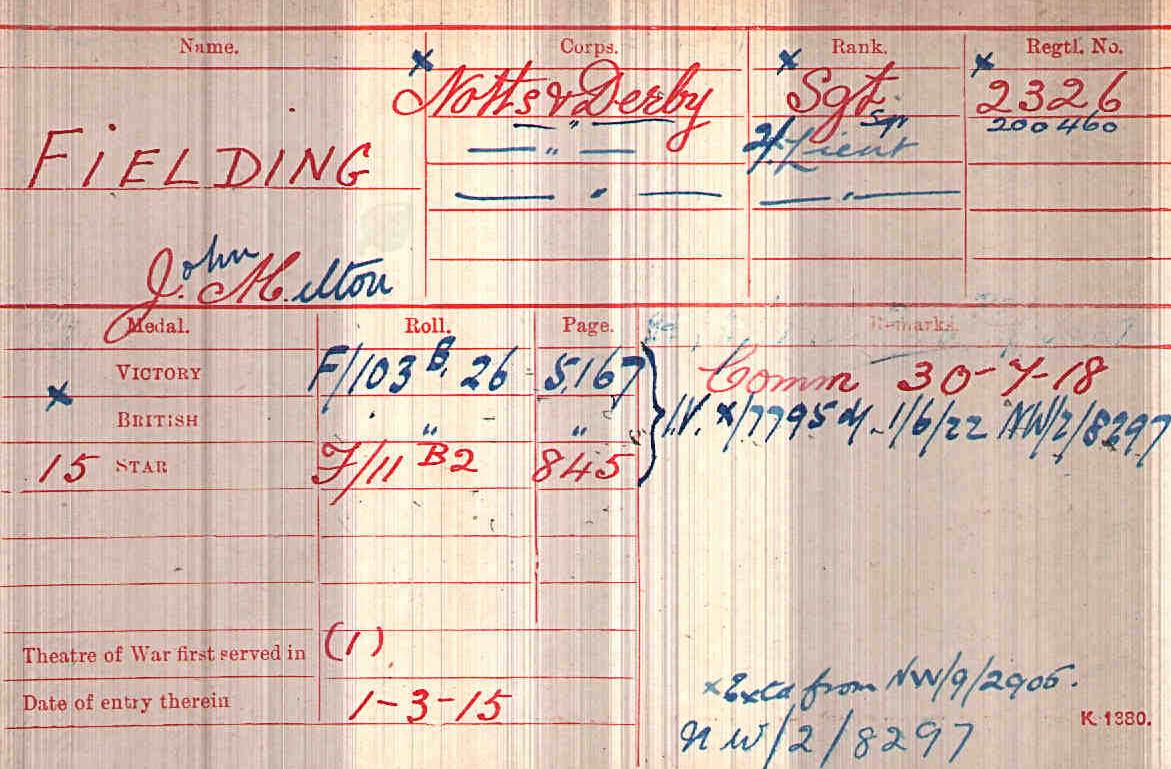 Name. Corps. Rank. Regtl. No.
x Notts & Derby x Sgt. x 2326
— " — Sgt 200460
FIELDING — " — 2/Lieut
— " — — " —
John Milton
Medal. Roll. Page. Remarks.
VICTORY F/103 B. 26 5167 Comm 30-7-18
x
BRITISH " " I.V. x/7795 1/6/22 NW/2/8297
15 STAR F/11 B2 845
Theatre of War first served in (1)
Date of entry therein 1-3-15
x from NW/9/2905.
K 1380.
NW/2/8297